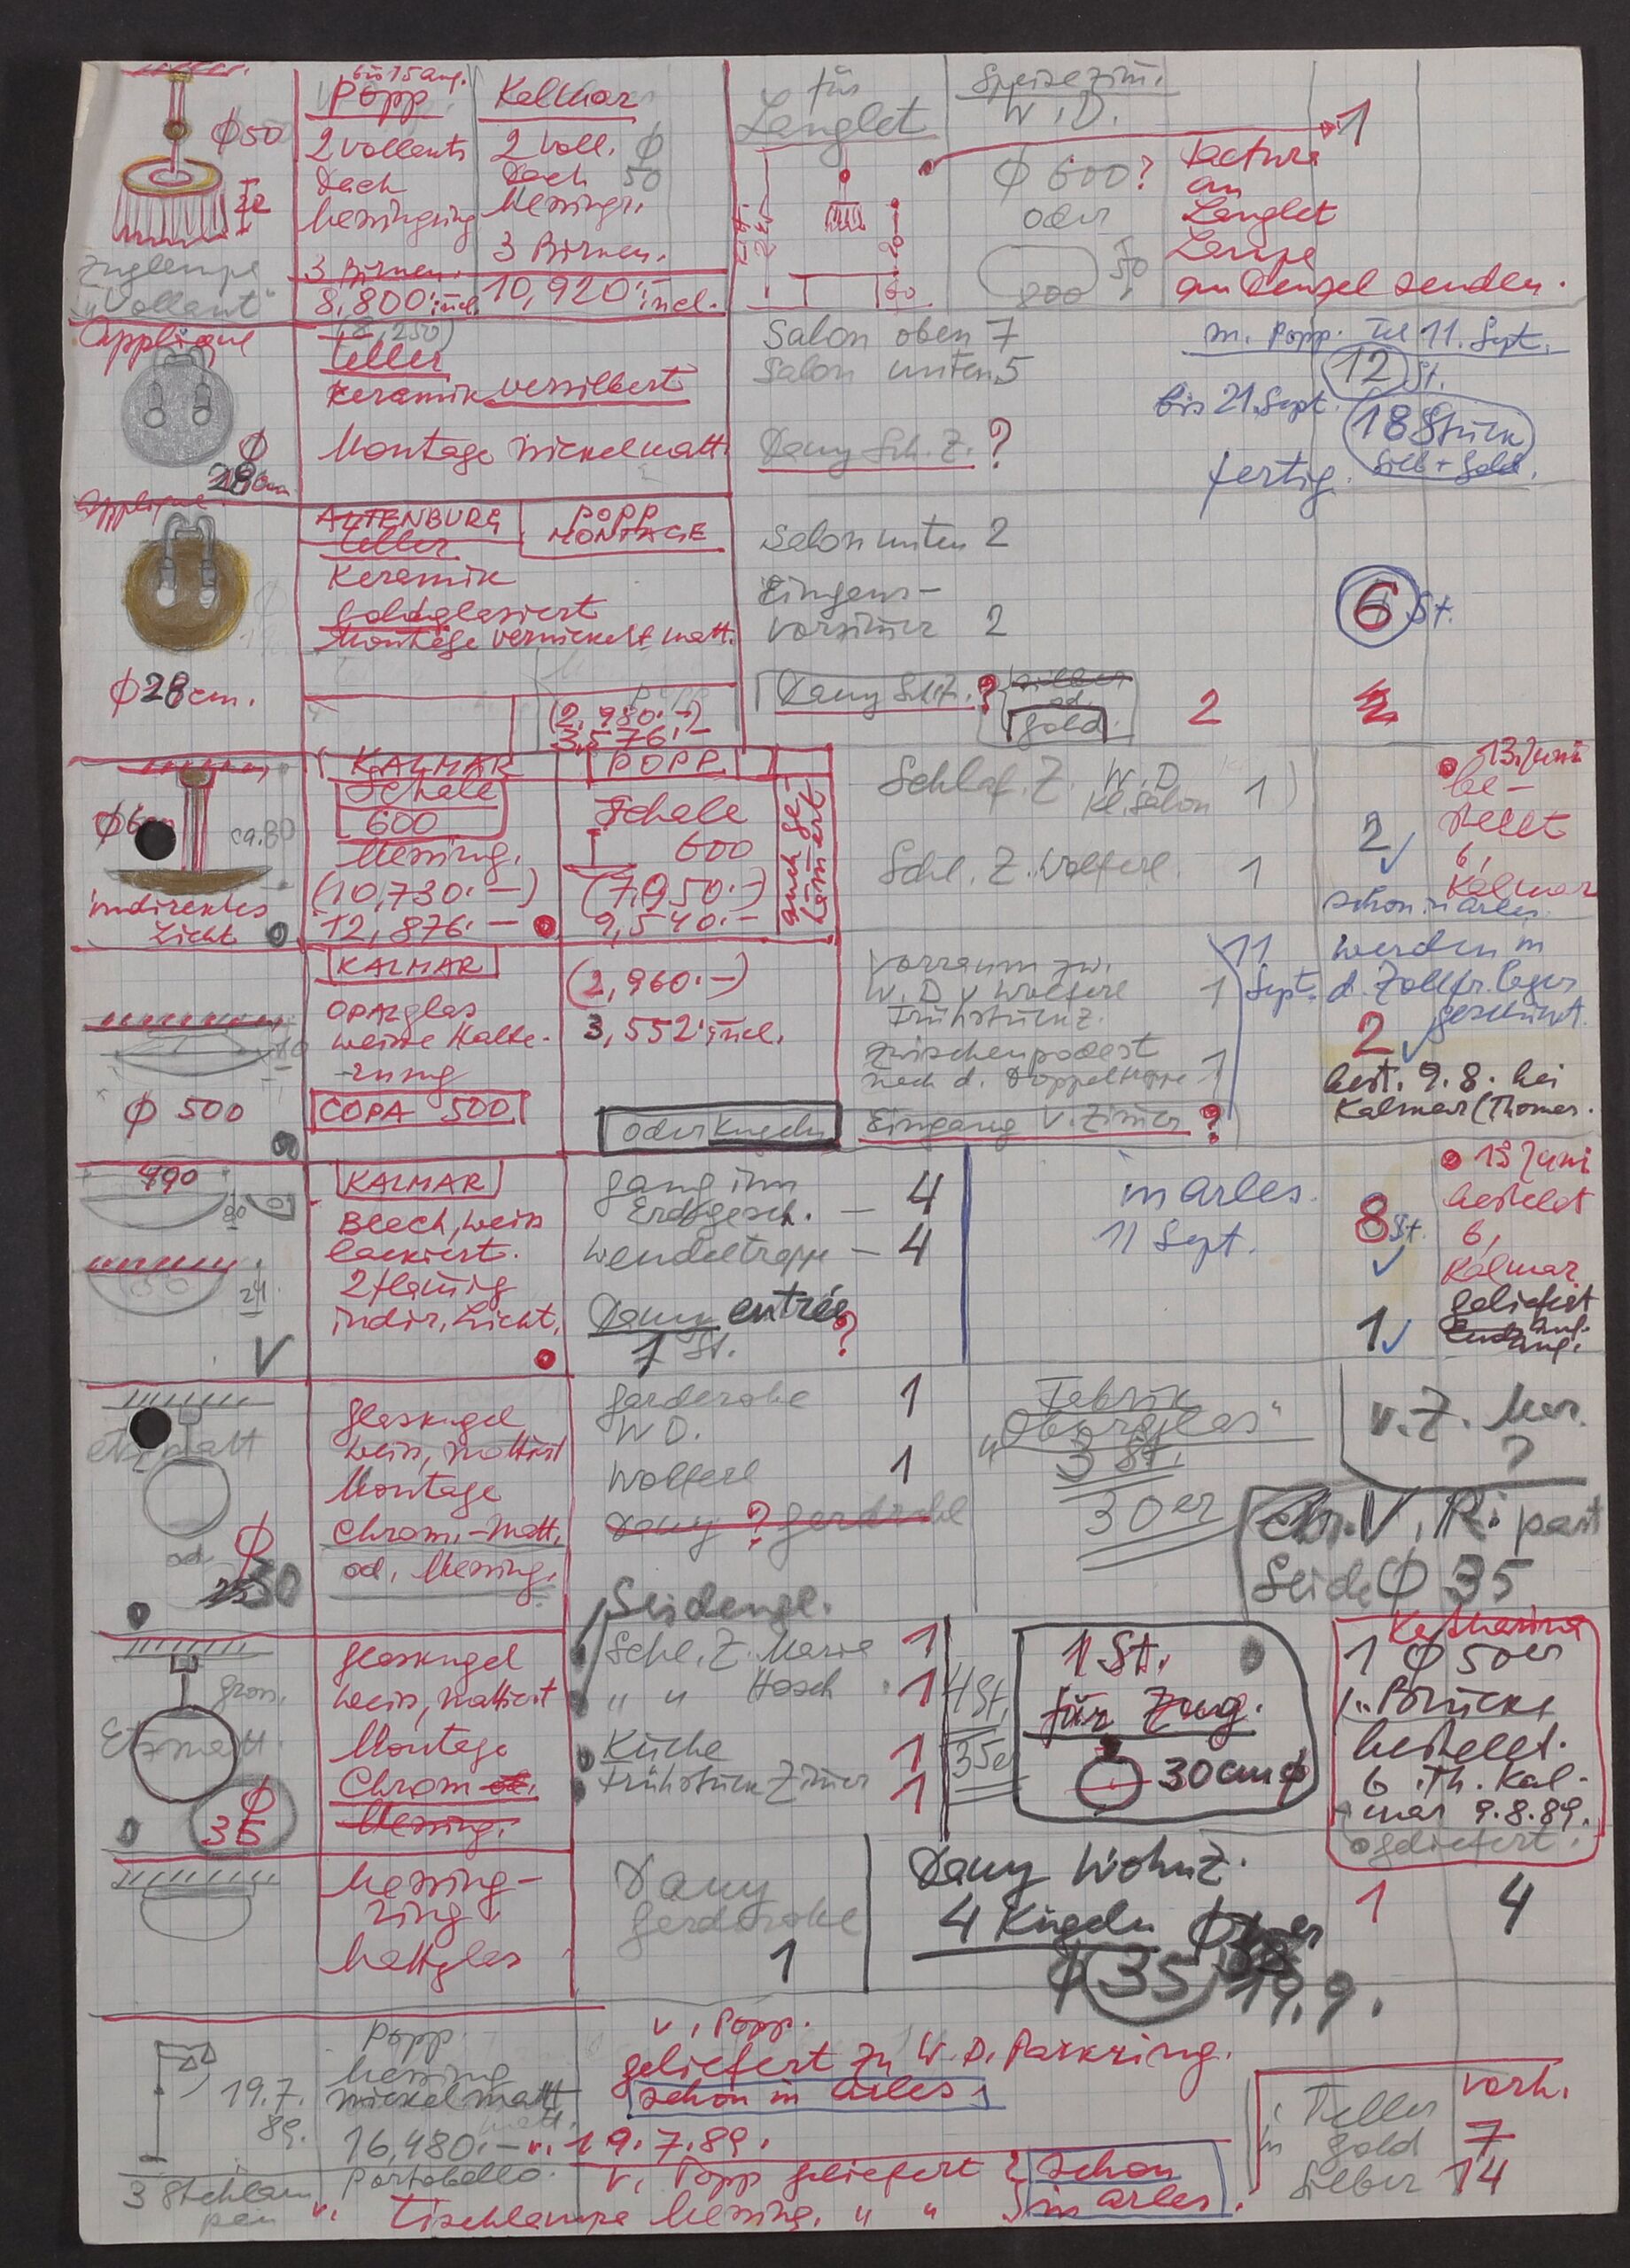 bis 15 aug.
Popp
Kalmar
für
Lenglet
Speisezim.
W.D.
1
φ50
2 Vollants
Dach
Messingring
3 Birnen.
8,800.- incl.
(8,250)
2 Voll. φ
Dach 50
Messingr.
3 Birnen.
10,920.- incl.
22
Zuglampe
"Vollant"
φ 600?
oder
50
800
60
Factura
an
Lenglet
Lampe
an Denzel senden.
Applique
Teller
Keramik versilbert
Montage Nickelmatt
φ
28cm
Salon oben 7
Salon unten 5
Dany Sch.Z. ?
m. Popp. Tel 11. Sept.
12 St.
bis 21. Sept.
18 Stück
Silb + Gold.
fertig.
Applique
ALTENBURG
POPP
MONTAGE
Teller
Keramik
Goldglasiert
Montage vernickelt matt.
φ28cm.
POPP
(2,980.-)
3,576.-
Salon unten 2
Eingangs-
vorzimmer 2
6 St.
Dany Sch.Z. ?
silber
od.
Gold
2
2
KALMAR
POPP
Schale
600
Messing.
(10,730.-)
12,876.-
Schale
600
(7,950.-)
9,540.-
auch ge-
hämmert
ca. 80
indirektes
Licht
Schlaf. Z. W.D.
Kl. Salon 1
Schl. Z. Wolferl. 1
2
13. Juni
be-
stellt
b.
Kalmar
schon in Arles.
KALMAR
OPALglas
weisse Halte-
rung
COPA 500
φ 500
10
(2,960.-)
3,552.- incl.
oder Kugeln
Vorraum zw.
W.D u Wolferl 1
Frühstückz.
Zwischenpodest
nach d. Doppeltreppe 1
Eingang V. Zimmer ?
11
Sept.
werden in
d. Zollfr. lager
geschickt.
2
best. 9.8. bei
Kalmar (Thomas.
490
80
KALMAR
Blech, weiss
lackiert.
2 flamig
indir. Licht.
24
V
Gang im
Erdgesch. – 4
Wendeltreppe – 4
Dany entrée
1 St. ?
in Arles.
11 Sept.
8 St.
13 Juni
bestellt
b.
Kalmar
1
geliefert
Etzmatt
od.
φ
25 30
Glaskugel
weiss, mattiert
Montage
Chrom,-matt.
od. Messing.
Garderobe 1
W D.
Wolferl 1
Dany ? Garderobe
Fabrik
"Oberglas"
3 St.
30er
V. Z. Mar.
?
V. R. part
Seide φ 35
Seidengl.
Schl. Z. Marie 1
" " Hosch. 1
Küche 1
Frühstück Zimmer 1
4 St.
35er
gross.
Etzmatt.
φ
35
Glaskugel
weiss, mattiert
Montage
Chrom od.
Messing.
1 St.
für Zug.
30cm φ
Katharina
1 φ 50er
1 "Brücke
bestellt.
b. Th. Kal-
mar 9.8.89.
geliefert.
Messing-
ring
Mattglas
Dany
Garderobe
1
Dany Wohnz.
4 Kugeln
φ 35 19.9.
1
4
19.7.
89.
3 Stehlam
pen
Popp
Messing
nickel matt
matt.
16,480.- v. 19.7.89.
Portobello.
v. Popp.
geliefert zu W.D. Parkring.
schon in Arles
v. Popp geliefert
v. Tischlampe Messing. " "
schon
in Arles.
vorh.
Teller
in Gold 7
Silber 14